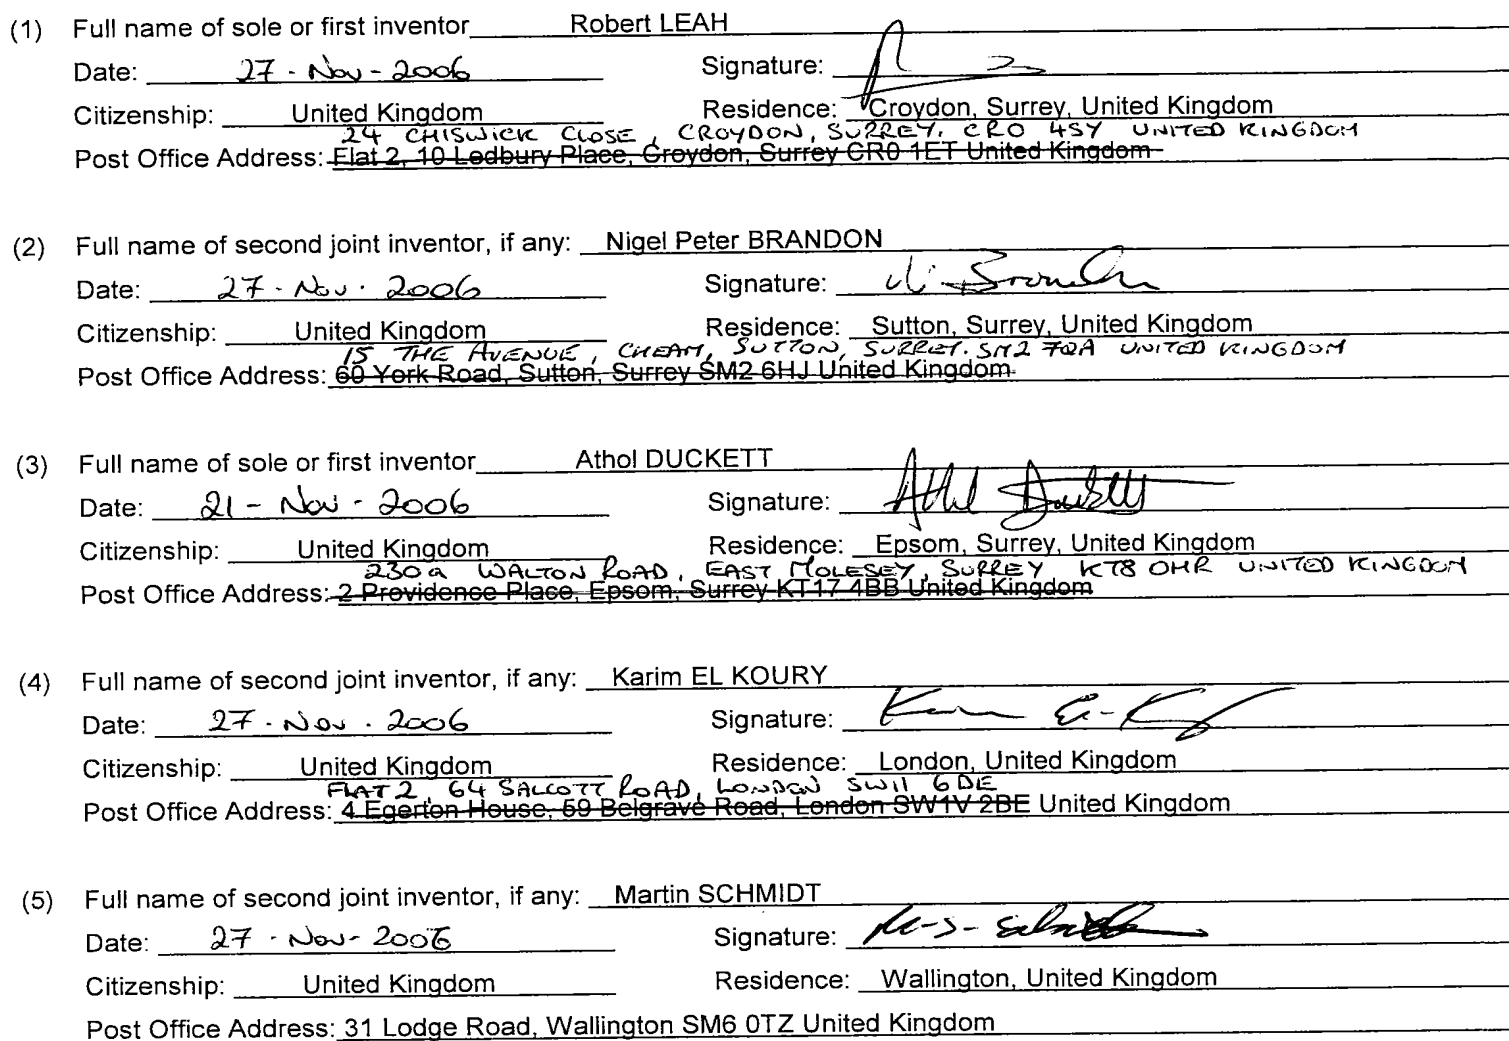 (1) Full name of sole or first inventor Robert LEAH
Date: 27 - Nov - 2006 Signature:
Citizenship: United Kingdom Residence: Croydon, Surrey, United Kingdom
24 CHISWICK CLOSE, CROYDON, SURREY. CR0 4SY UNITED KINGDOM
Post Office Address: Flat 2, 10 Ledbury Place, Croydon, Surrey CR0 1ET United Kingdom
(2) Full name of second joint inventor, if any: Nigel Peter BRANDON
Date: 27 - Nov . 2006 Signature:
Citizenship: United Kingdom Residence: Sutton, Surrey, United Kingdom
15 THE AVENUE, CHEAM, SUTTON, SURREY. SM2 7QA UNITED KINGDOM
Post Office Address: 60 York Road, Sutton, Surrey SM2 6HJ United Kingdom
(3) Full name of sole or first inventor Athol DUCKETT
Date: 21 - Nov - 2006 Signature: Athol Duckett
Citizenship: United Kingdom Residence: Epsom, Surrey, United Kingdom
230a WALTON ROAD, EAST MOLESEY, SURREY KT8 0HR UNITED KINGDOM
Post Office Address: 2 Providence Place, Epsom, Surrey KT17 4BB United Kingdom
(4) Full name of second joint inventor, if any: Karim EL KOURY
Date: 27 - Nov . 2006 Signature:
Citizenship: United Kingdom Residence: London, United Kingdom
FLAT 2, 64 SALCOTT ROAD, LONDON SW11 6DE
Post Office Address: 4 Egerton House, 59 Belgrave Road, London SW1V 2BE United Kingdom
(5) Full name of second joint inventor, if any: Martin SCHMIDT
Date: 27 - Nov - 2006 Signature:
Citizenship: United Kingdom Residence: Wallington, United Kingdom
Post Office Address: 31 Lodge Road, Wallington SM6 0TZ United Kingdom